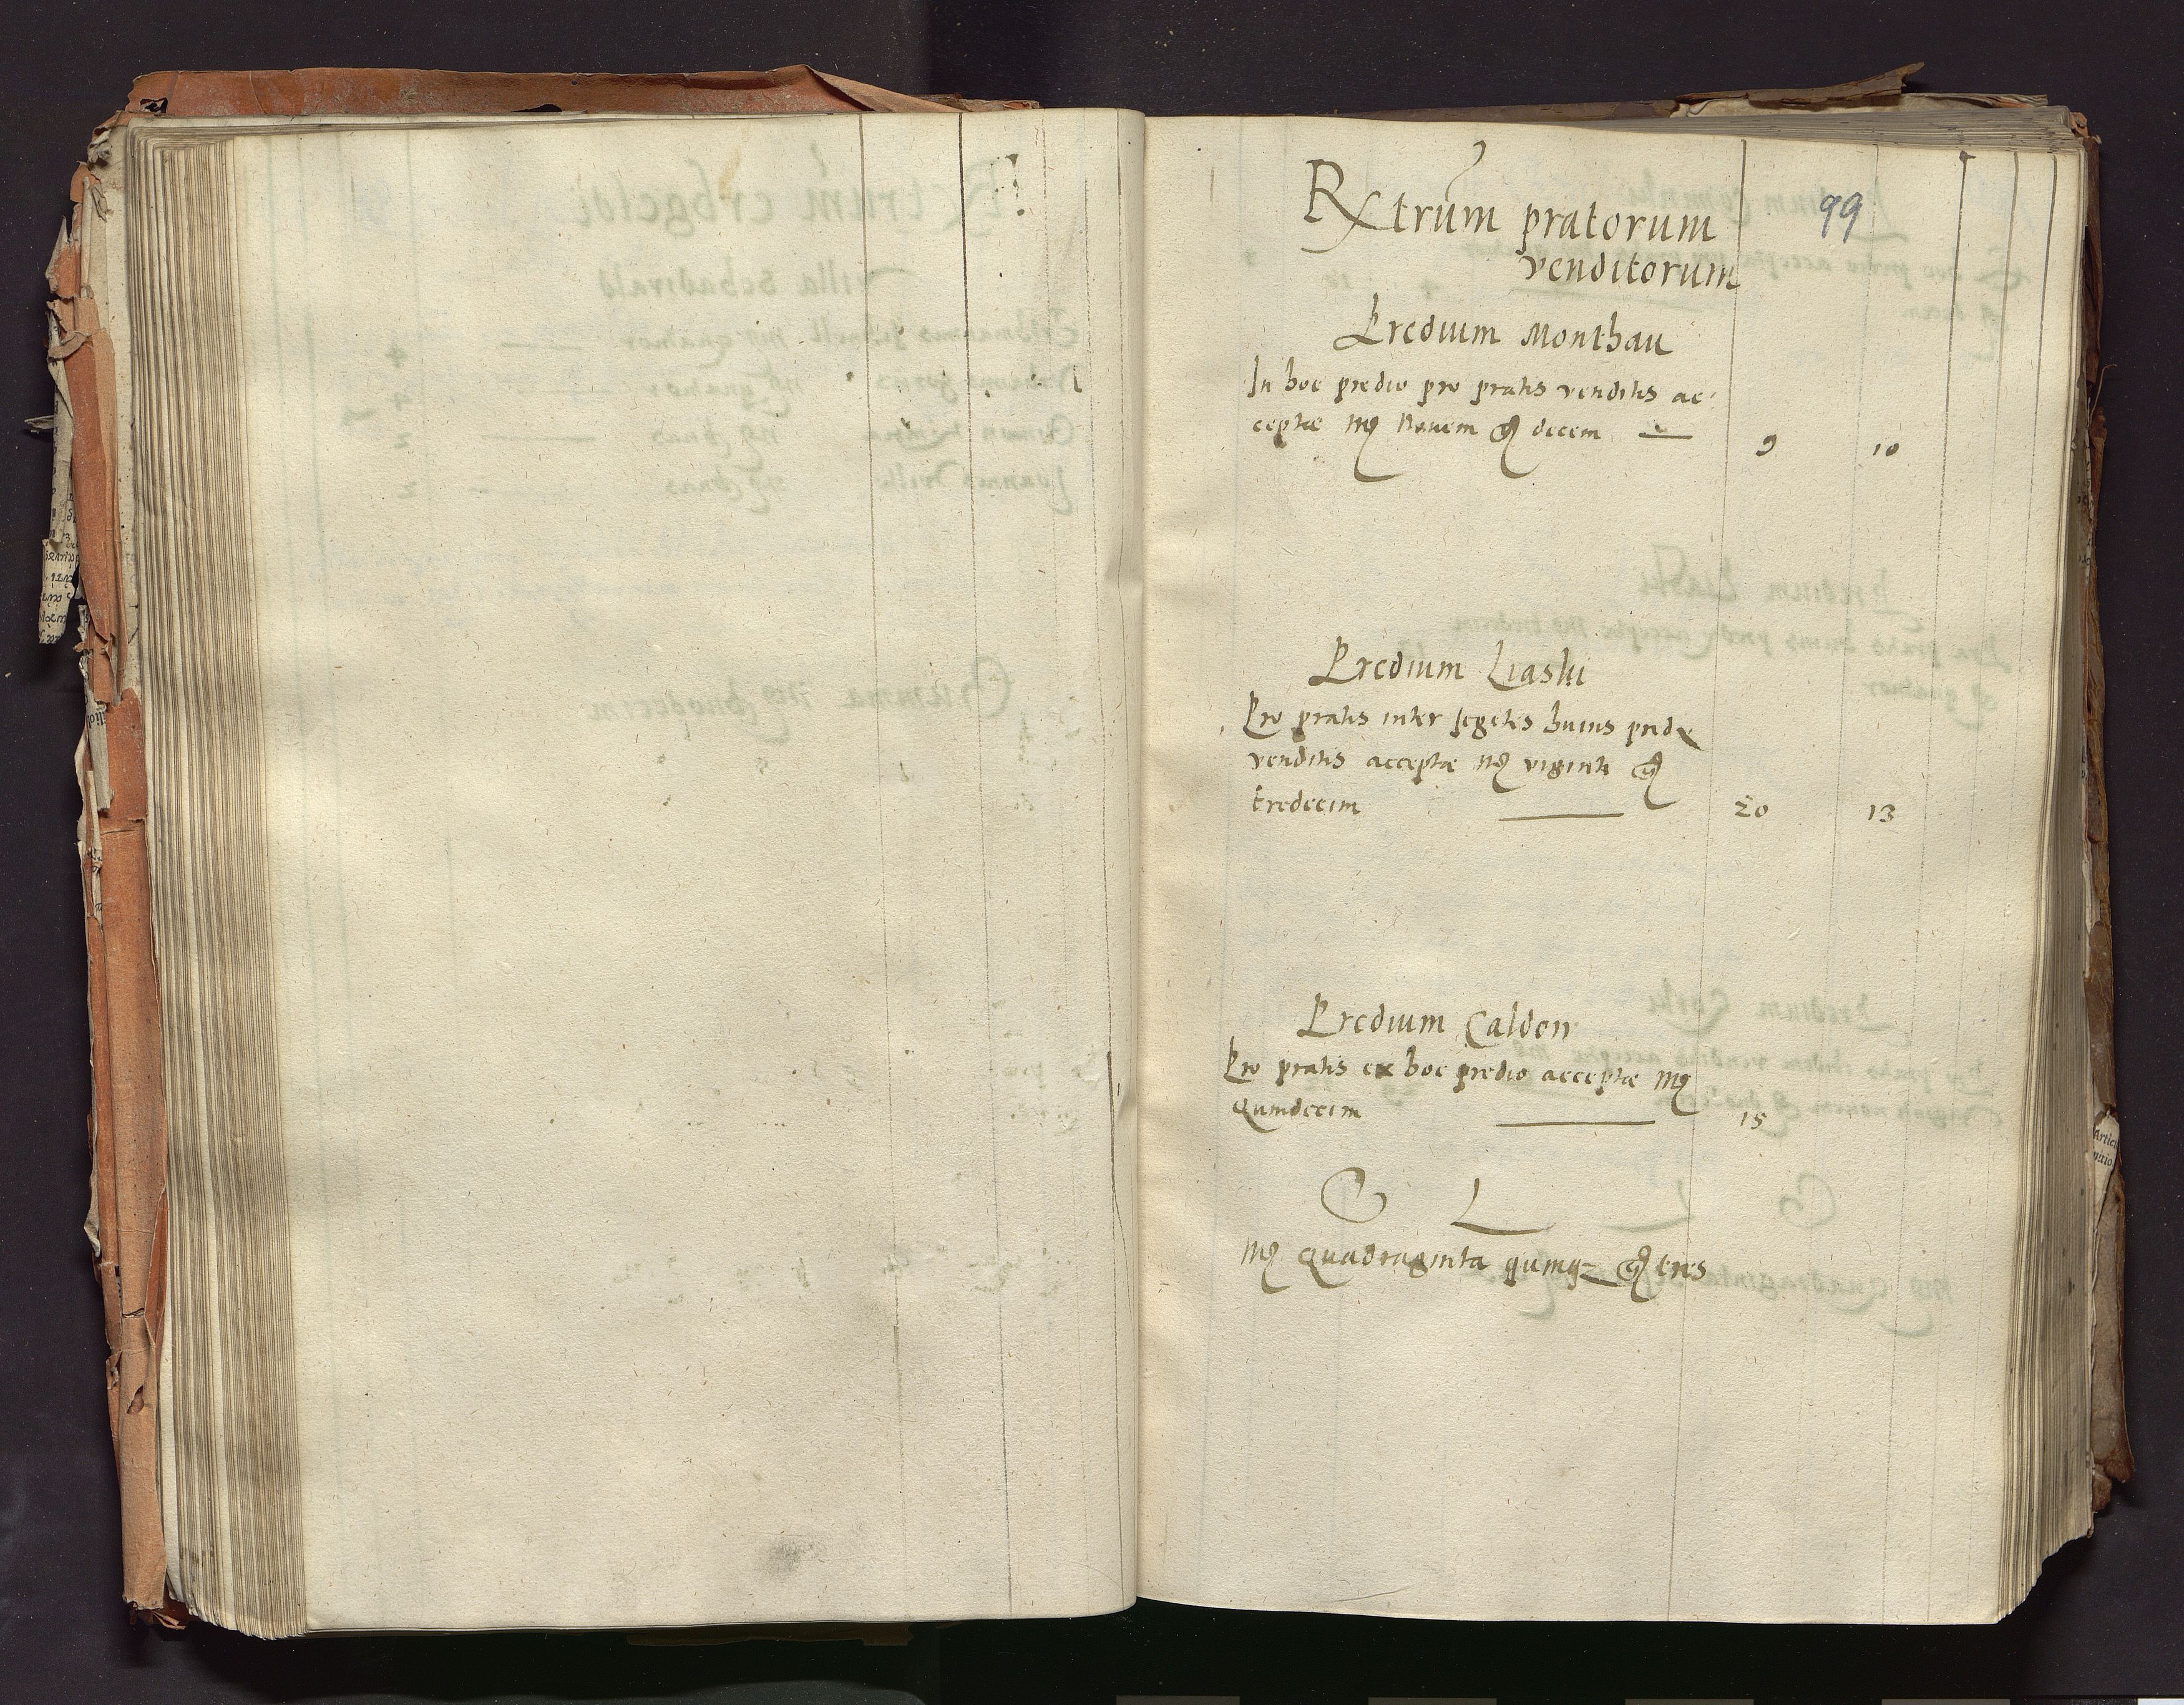 Rxtrum pratorum
99
venditorum
Predium Monthau
In hoc predio pro pratis venditis ac-
ceptæ mg Novem gr decem 9 10
Predium Liaski
Pro pratis inter segetes huius predÿ
venditis acceptæ mg viginti gr
tredecim 20 13
Predium Caldon
Pro pratis ex hoc predio acceptæ mg
Quindecim 15
S L
mg Quadraginta quinqz gr tres